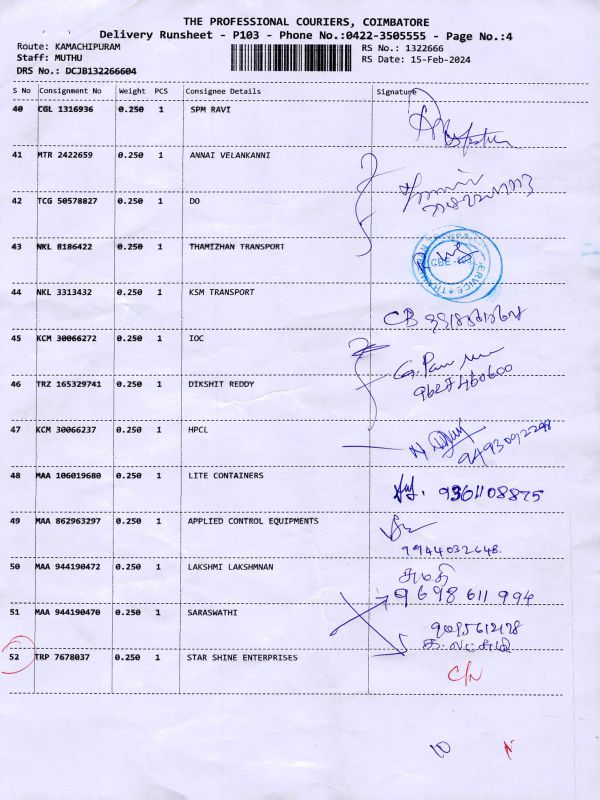 THE PROFESSIONAL COURIERS, COIMBATORE
Delivery Runsheet - P103 - Phone No.:0422-3505555 - Page No.:4
Route: KAMACHIPURAM RS No.: 1322666
Staff: MUTHU RS Date: 15-Feb-2024
DRS No.: DCJB132266604
S No Consignment No Weight PCS Consignee Details Signature
40 CGL 1316936 0.250 1 SPM RAVI
41 MTR 2422659 0.250 1 ANNAI VELANKANNI
42 TCG 50578827 0.250 1 DO
43 NKL 8186422 0.250 1 THAMIZHAN TRANSPORT
44 NKL 3313432 0.250 1 KSM TRANSPORT
45 KCM 30066272 0.250 1 IOC
46 TRZ 165329741 0.250 1 DIKSHIT REDDY
9627460600
47 KCM 30066237 0.250 1 HPCL
9493092298
48 MAA 106019680 0.250 1 LITE CONTAINERS
9361108875
49 MAA 862963297 0.250 1 APPLIED CONTROL EQUIPMENTS
9944032648.
50 MAA 944190472 0.250 1 LAKSHMI LAKSHMNAN
சுமதி
9698611994
51 MAA 944190470 0.250 1 SARASWATHI
9095612178
52 TRP 7678037 0.250 1 STAR SHINE ENTERPRISES
C/N
10